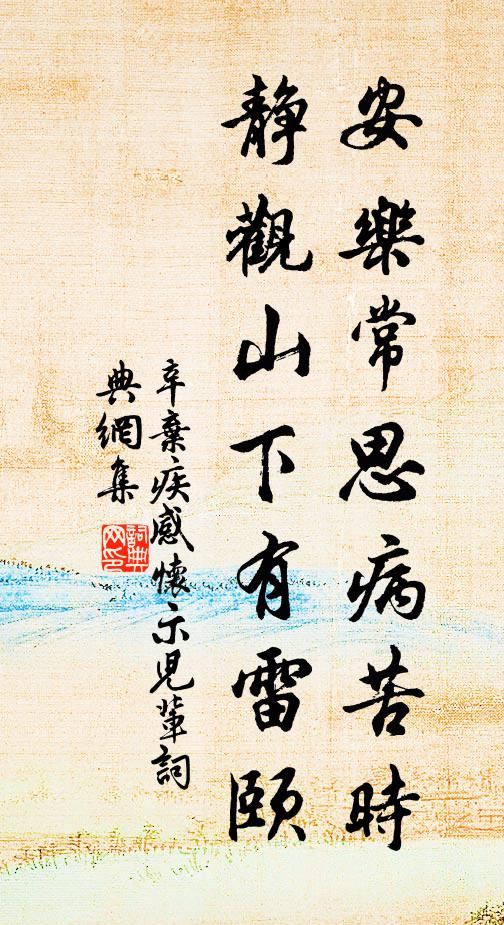 安樂常思病苦時
靜觀山下有雷頤
辛棄疾感懷示児輩詞
典網集
詞典
网印